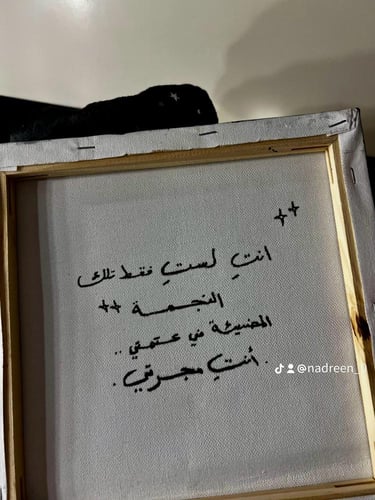 انتِ لستِ فقط تلك
النجمة
المضيئة في عتمتي ..
أنتِ مجرتي .
@nadreen_